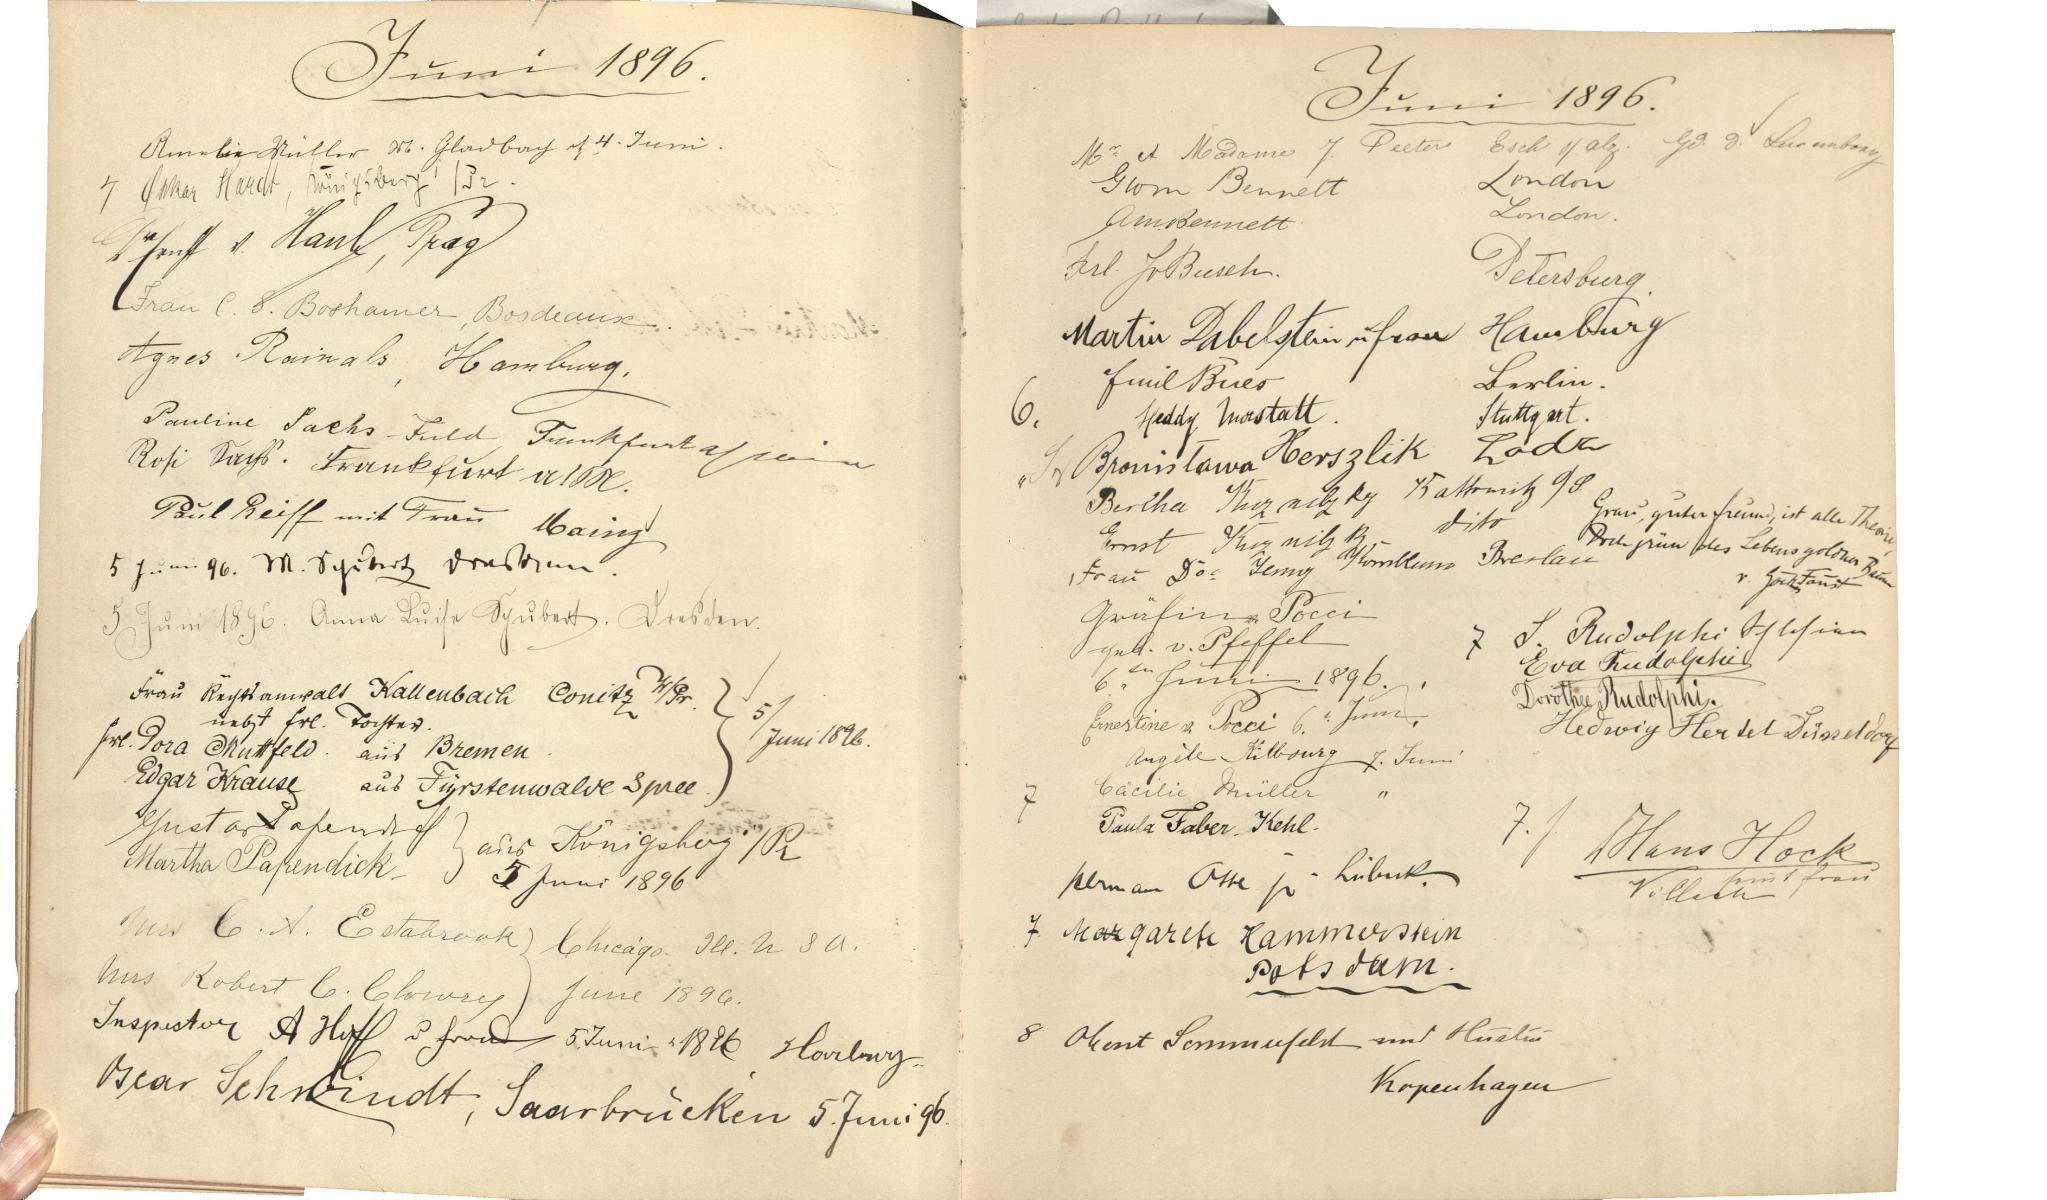 Juni 1896.
Amelie Müller M. Gladbach d 4. Juni.
Oskar Hardt, Königsberg i/Pr.
Ernst v. Prag
Frau C. S. Boshamer, Bordeaux.
Agnes Rainals, Hamburg.
Pauline Sachs-Fuld Frankfurt a/Main
Rosi Sachs. Frankfurt a/M.
Paul Reiff mit Frau Mainz
5 Juni 96. M. Schubert Dresden.
5 Juni 1896. Anna Luise Schubert. Dresden.
Frau Rechtsanwalt Kallenbach Conitz W/Pr.
nebst Frl. Tochter.
Frl. Dora Muttfeld. aus Bremen
Edgar Krause aus Fürstenwalde Spree.
5/ Juni 1896.
Gustav Papendieck
Martha Papendick
aus Königsberg i/Pr
5 Juni 1896
Mrs C. A. Estabrook
Mrs Robert C. Clowry
Chicago. Ill. U S A.
June 1896.
Inspector A Hoff u frau 5 Juni 1896 Harburg
Oscar Schwindt, Saarbrücken 5. Juni 96.
Juni 1896.
Mr et Madame J. Peeters Esch s/ alz. Gd. D. Luxembourg
Bennett London
Bennett London.
Frl. Jo Busch. Petersburg.
Martin Dabelstein u frau Hamburg
Emil Bues Berlin.
6. Heddy Morstatt. Stuttgart.
Bronisława Herszlik Lodz
Bertha Kuznitzky Kattowitz O/S
Ernst Kuznitzky dito
Frau Jenny Breslau
Grau, guter Freund, ist alle Theorie,
Doch grün des Lebens goldner Baum
v. Goethe Faust
Gräfin Pocci
geb. v. Pfeffel
6. Juni 1896.
Ernestine v. Pocci 6. Juni.
Angèle Kilbourg 7. Juni
Cäcilie Müller "
7 Paula Faber. Kehl.
7 S. Rudolphi Schlesien
Eva Rudolphi
Dorothee Rudolphi.
Hedwig Hertel Düsseldorf
Herman Otte jr Lübeck.
7. Hans Hock
und frau
7. Margarete Hammerstein
Potsdam.
8 Sommerfeldt und Hustru
Kopenhagen